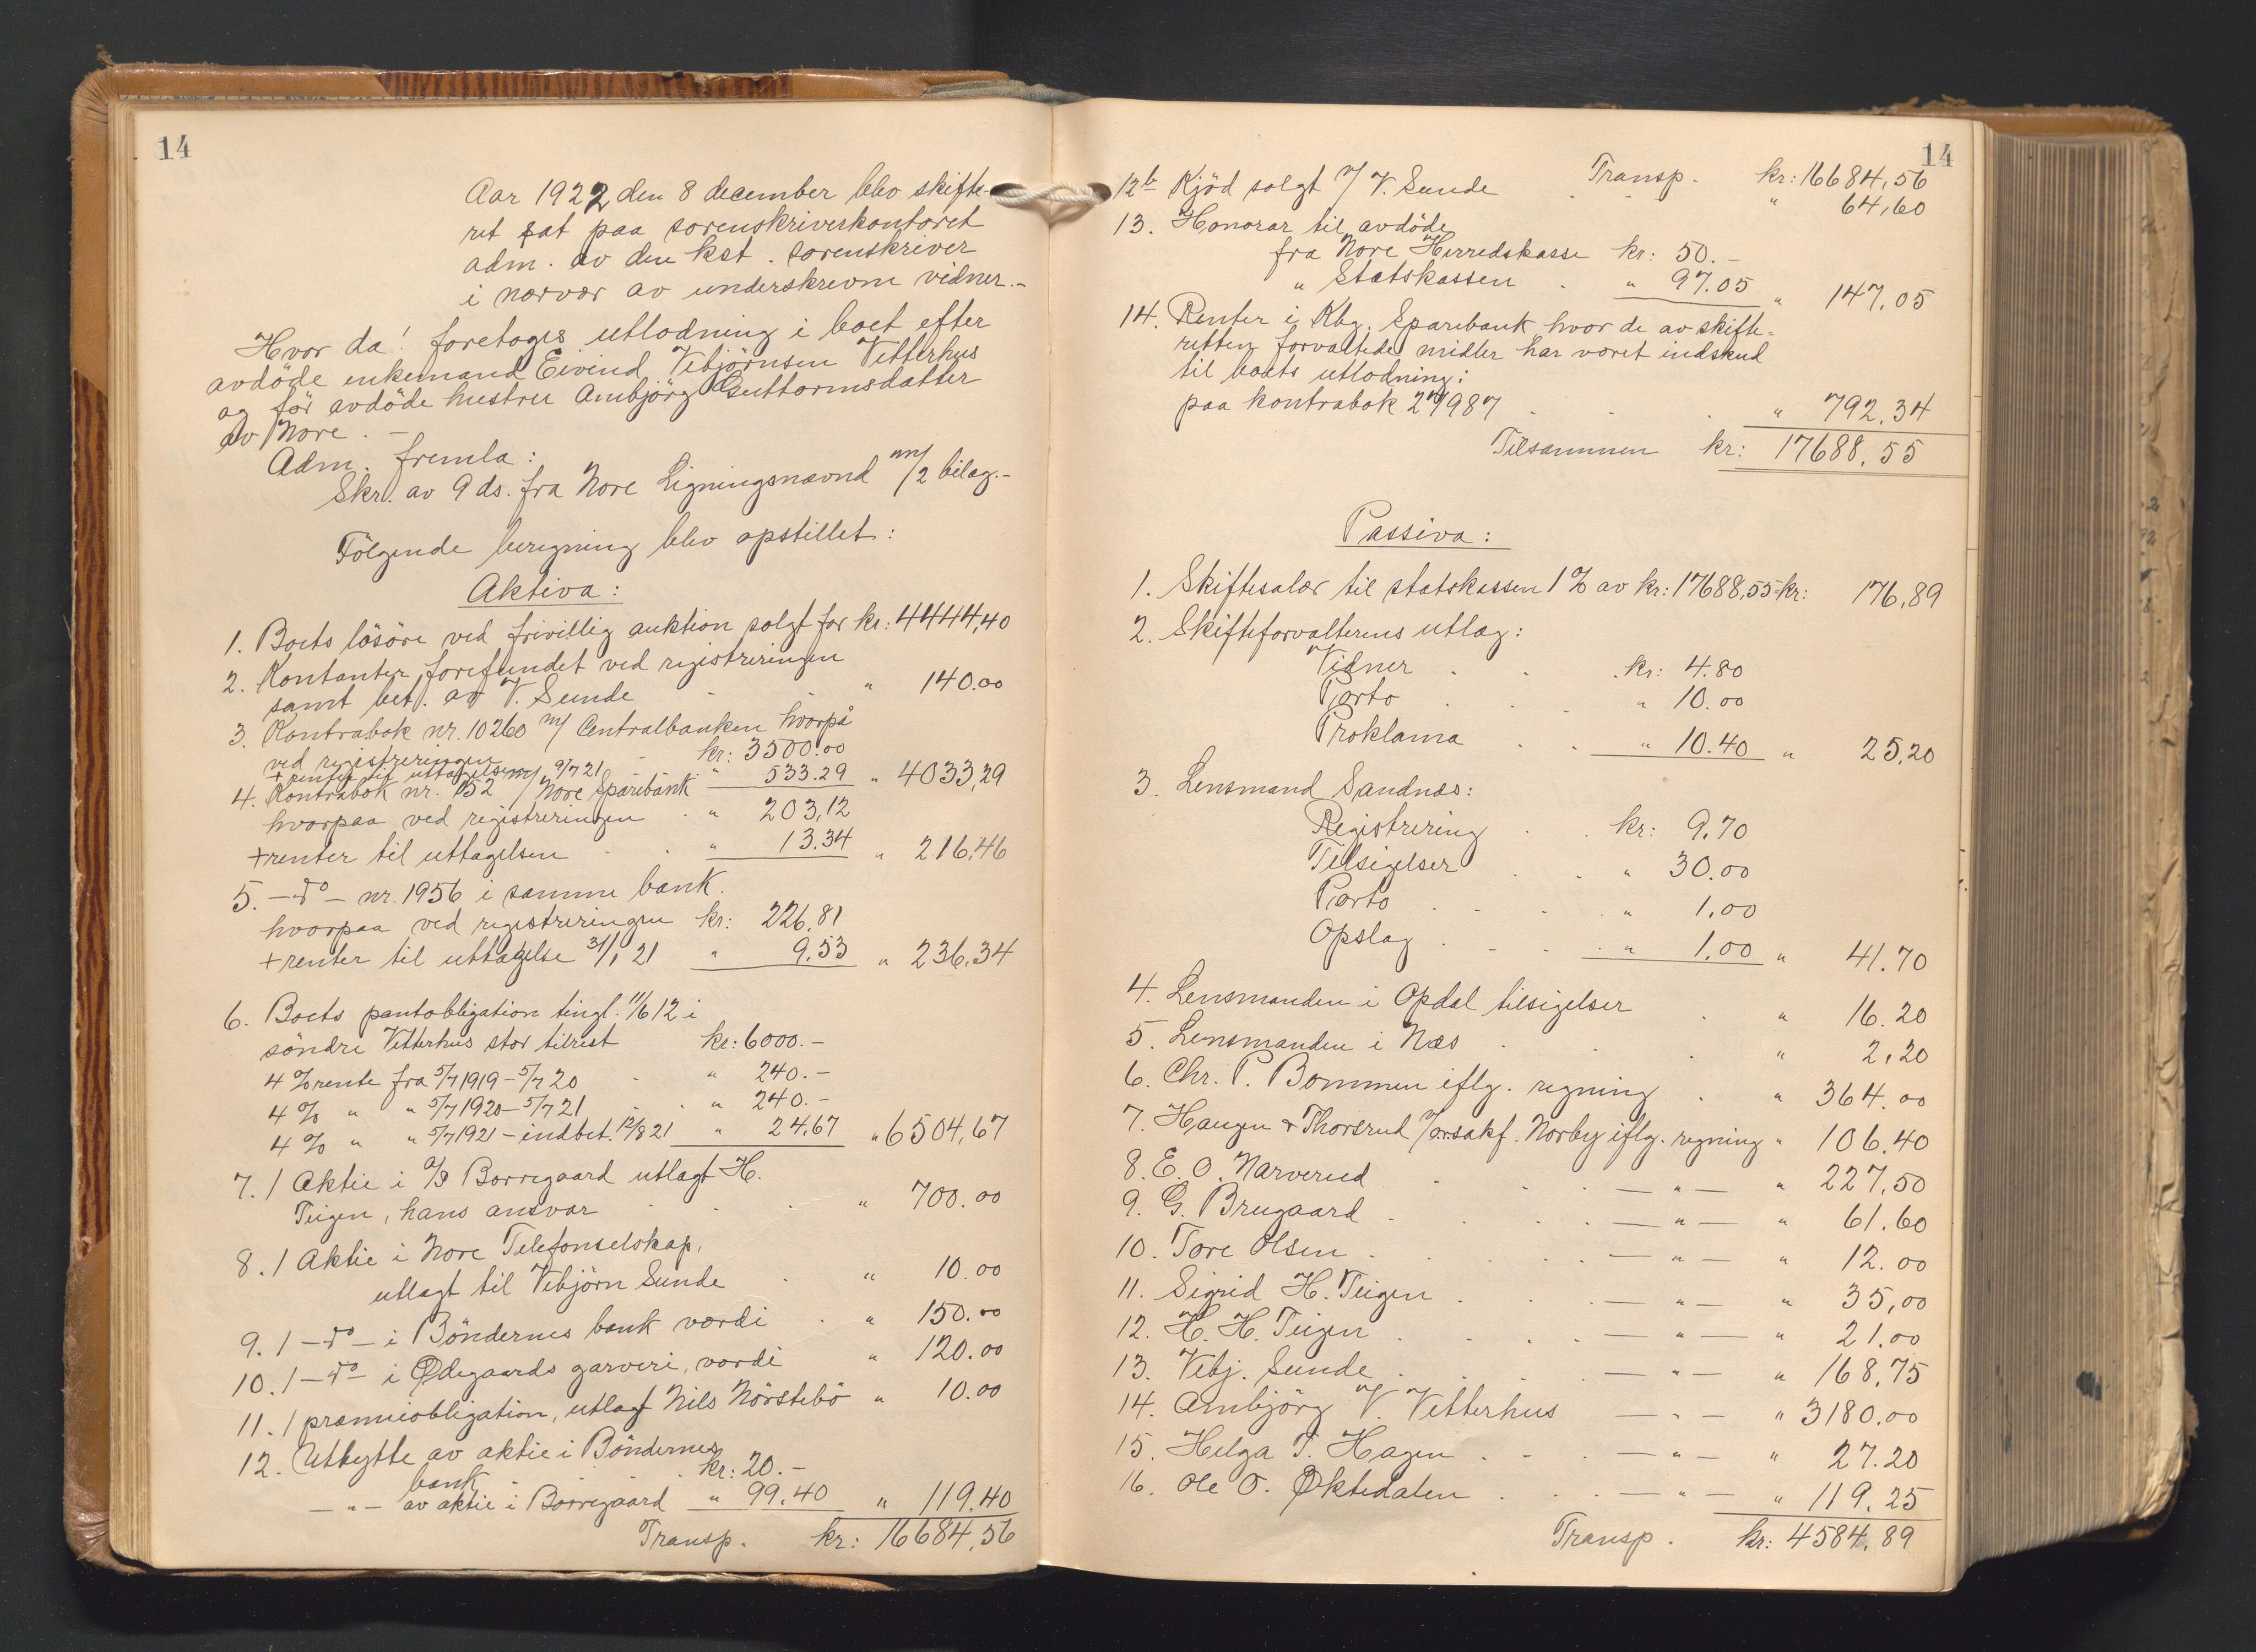 14
Aar 1922 den 8 december blev skifte-
ret sat paa sorenskriverkontoret
adm. av den kst. sorenskriver
i nærvær av underskrevne vidner.-
Hvor da! foretoges utlodning i boet efter
avdöde enkemand Eivind Vebjörnsen Vetterhus
og för avdöde hustru Ambjörg Guttormsdatter
av Nore. -
Adm. fremla:
Skr. av 9 ds. fra Nore Ligningsnævnd m/2 bilag.-
Fölgende beregning blev opstillet:
Aktiva:
1. Boets lösöre ved frivillig auktion solgt for kr: 4444,40
2. Kontanter forefundet ved registreringen
samt bet. av V. Sunde " 140.00
3. Kontrabok nr. 10260 m/ Centralbanken hvorpå
ved registreringen kr: 3500.00
+ renter til uttagelsen 9/7 21 " 533.29 " 4033,29
4. Kontrabok nr. 152 m/ Nore Sparebank
hvorpaa ved registreringen " 203,12
+ renter til uttagelsen " 13.34 " 216,46
5. - do - nr. 1956 i samme bank.
hvorpaa ved registreringen kr: 226,81
+ renter til uttagelse 31/1 21 " 9,53 " 236,34
6. Boets pantobligation tingl. 11/6 12 i
söndre Vetterhus stor tilrest kr: 6000.-
4 % rente fra 5/7 1919 - 5/7 20 " 240.-
4 % " " 5/7 1920 - 5/7 21 " 240.-
4 % " " 5/7 1921 - indbet. 12/8 21 " 24,67 " 6504,67
7. 1 Aktie i A/S Borregaard utlagt H.
Teigen, hans ansvar " 700.00
8. 1 Aktie i Nore Telefonselskap,
utlagt til Vebjörn Sunde " 10.00
9. 1 - do - i Böndernes bank værdi " 150.00
10. 1 - do - i Ødegaards garveri, værdi " 120.00
11. 1 præmieobligation, utlagt Nils Nörstebö " 10.00
12. Utbytte av aktie i Böndernes
bank kr: 20.-
- " - av aktie i Borregaard " 99,40 " 119.40
Transp. kr: 16684,56
14
Transp. kr: 16684,56
12b Kjöd solgt t/ V. Sunde " 64,60
13. Honorar til avdöde
fra Nore Herredskasse kr: 50.-
" Statskassen " 97.05 " 147,05
14. Renter i Kbg. Sparebank hvor de av skifte-
retten forvaltede midler har været indskud
til boets utlodning:
paa kontrabok 27987 " 792,34
Tilsammen kr: 17688,55
Passiva:
1. Skiftesalær til statskassen 1 % av kr: 17688,55 = kr: 176,89
2. Skifteforvalterens utlæg:
Vidner kr: 4.80
Porto " 10.00
Proklama " 10.40 " 25,20
3. Lensmand Sandnæs:
Registrering kr: 9.70
Tilsigelser " 30.00
Porto " 1,00
Opslag " 1,00 " 41.70
4. Lensmanden i Opdal tilsigelser " 16.20
5. Lensmanden i Næs " 2,20
6. Chr. P. Bommen iflg. regning " 364.00
7. Haugen & Thorsrud v/ o.r.sakf. Norby iflg. regning " 106.40
8. E. O. Narverud - " - " 227,50
9. G. Brugaard - " - " 61.60
10. Tore Olsen - " - " 12.00
11. Sigrid H. Teigen - " - " 35,00
12. H. H. Teigen - " - " 21.00
13. Vebj. Sunde - " - " 168,75
14. Ambjörg V. Vetterhus - " - " 3180.00
15. Helga T. Hagen - " - " 27.20
16. Ole O. Øktedalen - " - " 119.25
Transp. kr: 4584,89